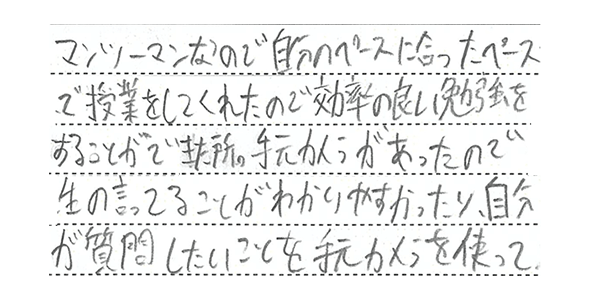 マンツーマンなので自分のペースに合ったペース
で授業をしてくれたので効率の良い勉強を
することができ 手元カメラがあったので
生の言ってることがわかりやすかったり、自分
が質問したいことを手元カメラを使って